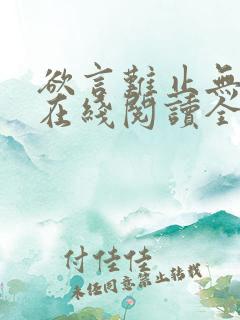 欲言難止無
在綫閱讀全
付佳佳
未经同意禁止转载